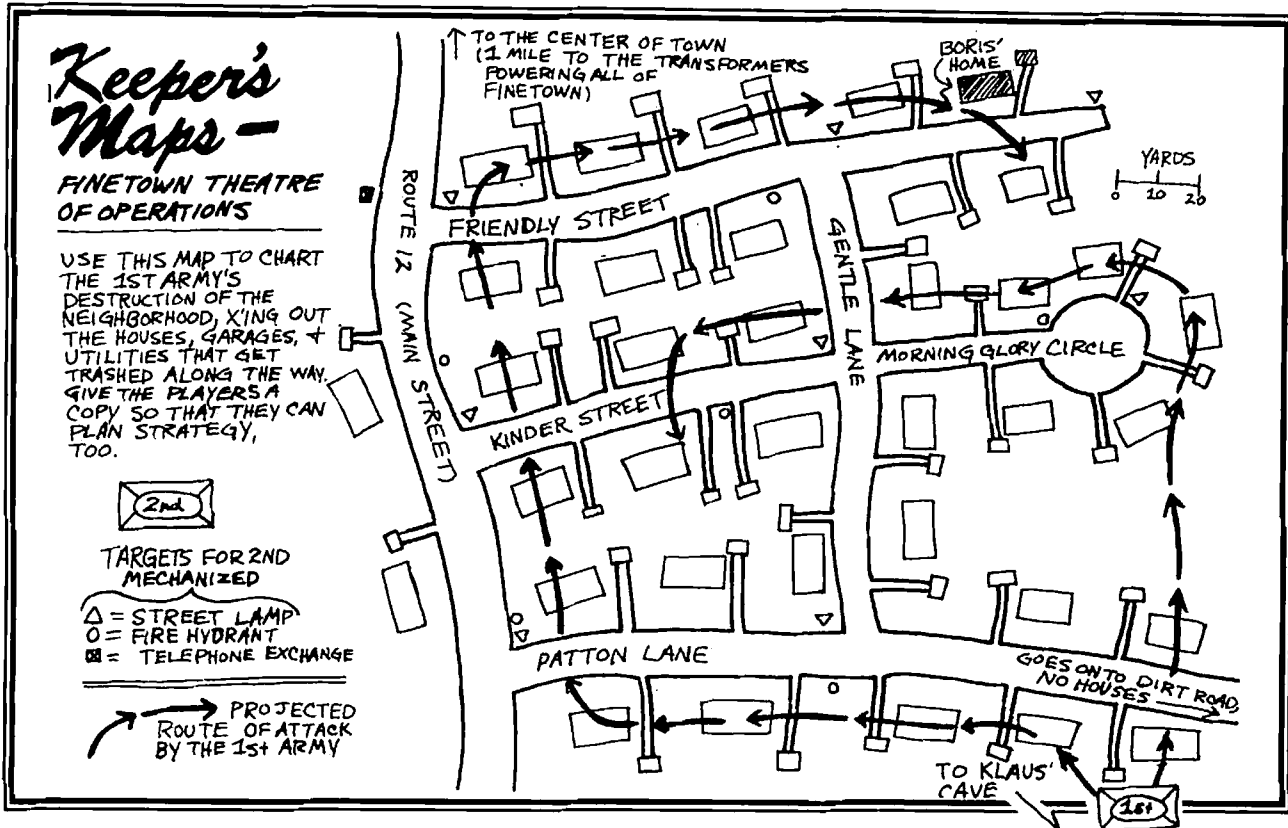 Keeper's
Maps –
FINETOWN THEATRE
OF OPERATIONS
USE THIS MAP TO CHART
THE 1ST ARMY'S
DESTRUCTION OF THE
NEIGHBORHOOD, X'ING OUT
THE HOUSES, GARAGES, +
UTILITIES THAT GET
TRASHED ALONG THE WAY.
GIVE THE PLAYERS A
COPY SO THAT THEY CAN
PLAN STRATEGY,
TOO.
2nd
TARGETS FOR 2ND
MECHANIZED
△ = STREET LAMP
O = FIRE HYDRANT
⊠ = TELEPHONE EXCHANGE
PROJECTED
ROUTE OF ATTACK
BY THE 1st ARMY
↑ TO THE CENTER OF TOWN
(1 MILE TO THE TRANSFORMERS
POWERING ALL OF
FINETOWN)
BORIS'
HOME
YARDS
0 10 20
ROUTE 12 (MAIN STREET)
FRIENDLY STREET
GENTLE LANE
MORNING GLORY CIRCLE
KINDER STREET
PATTON LANE
GOES ON TO DIRT ROAD,
NO HOUSES →
TO KLAUS'
CAVE
1st